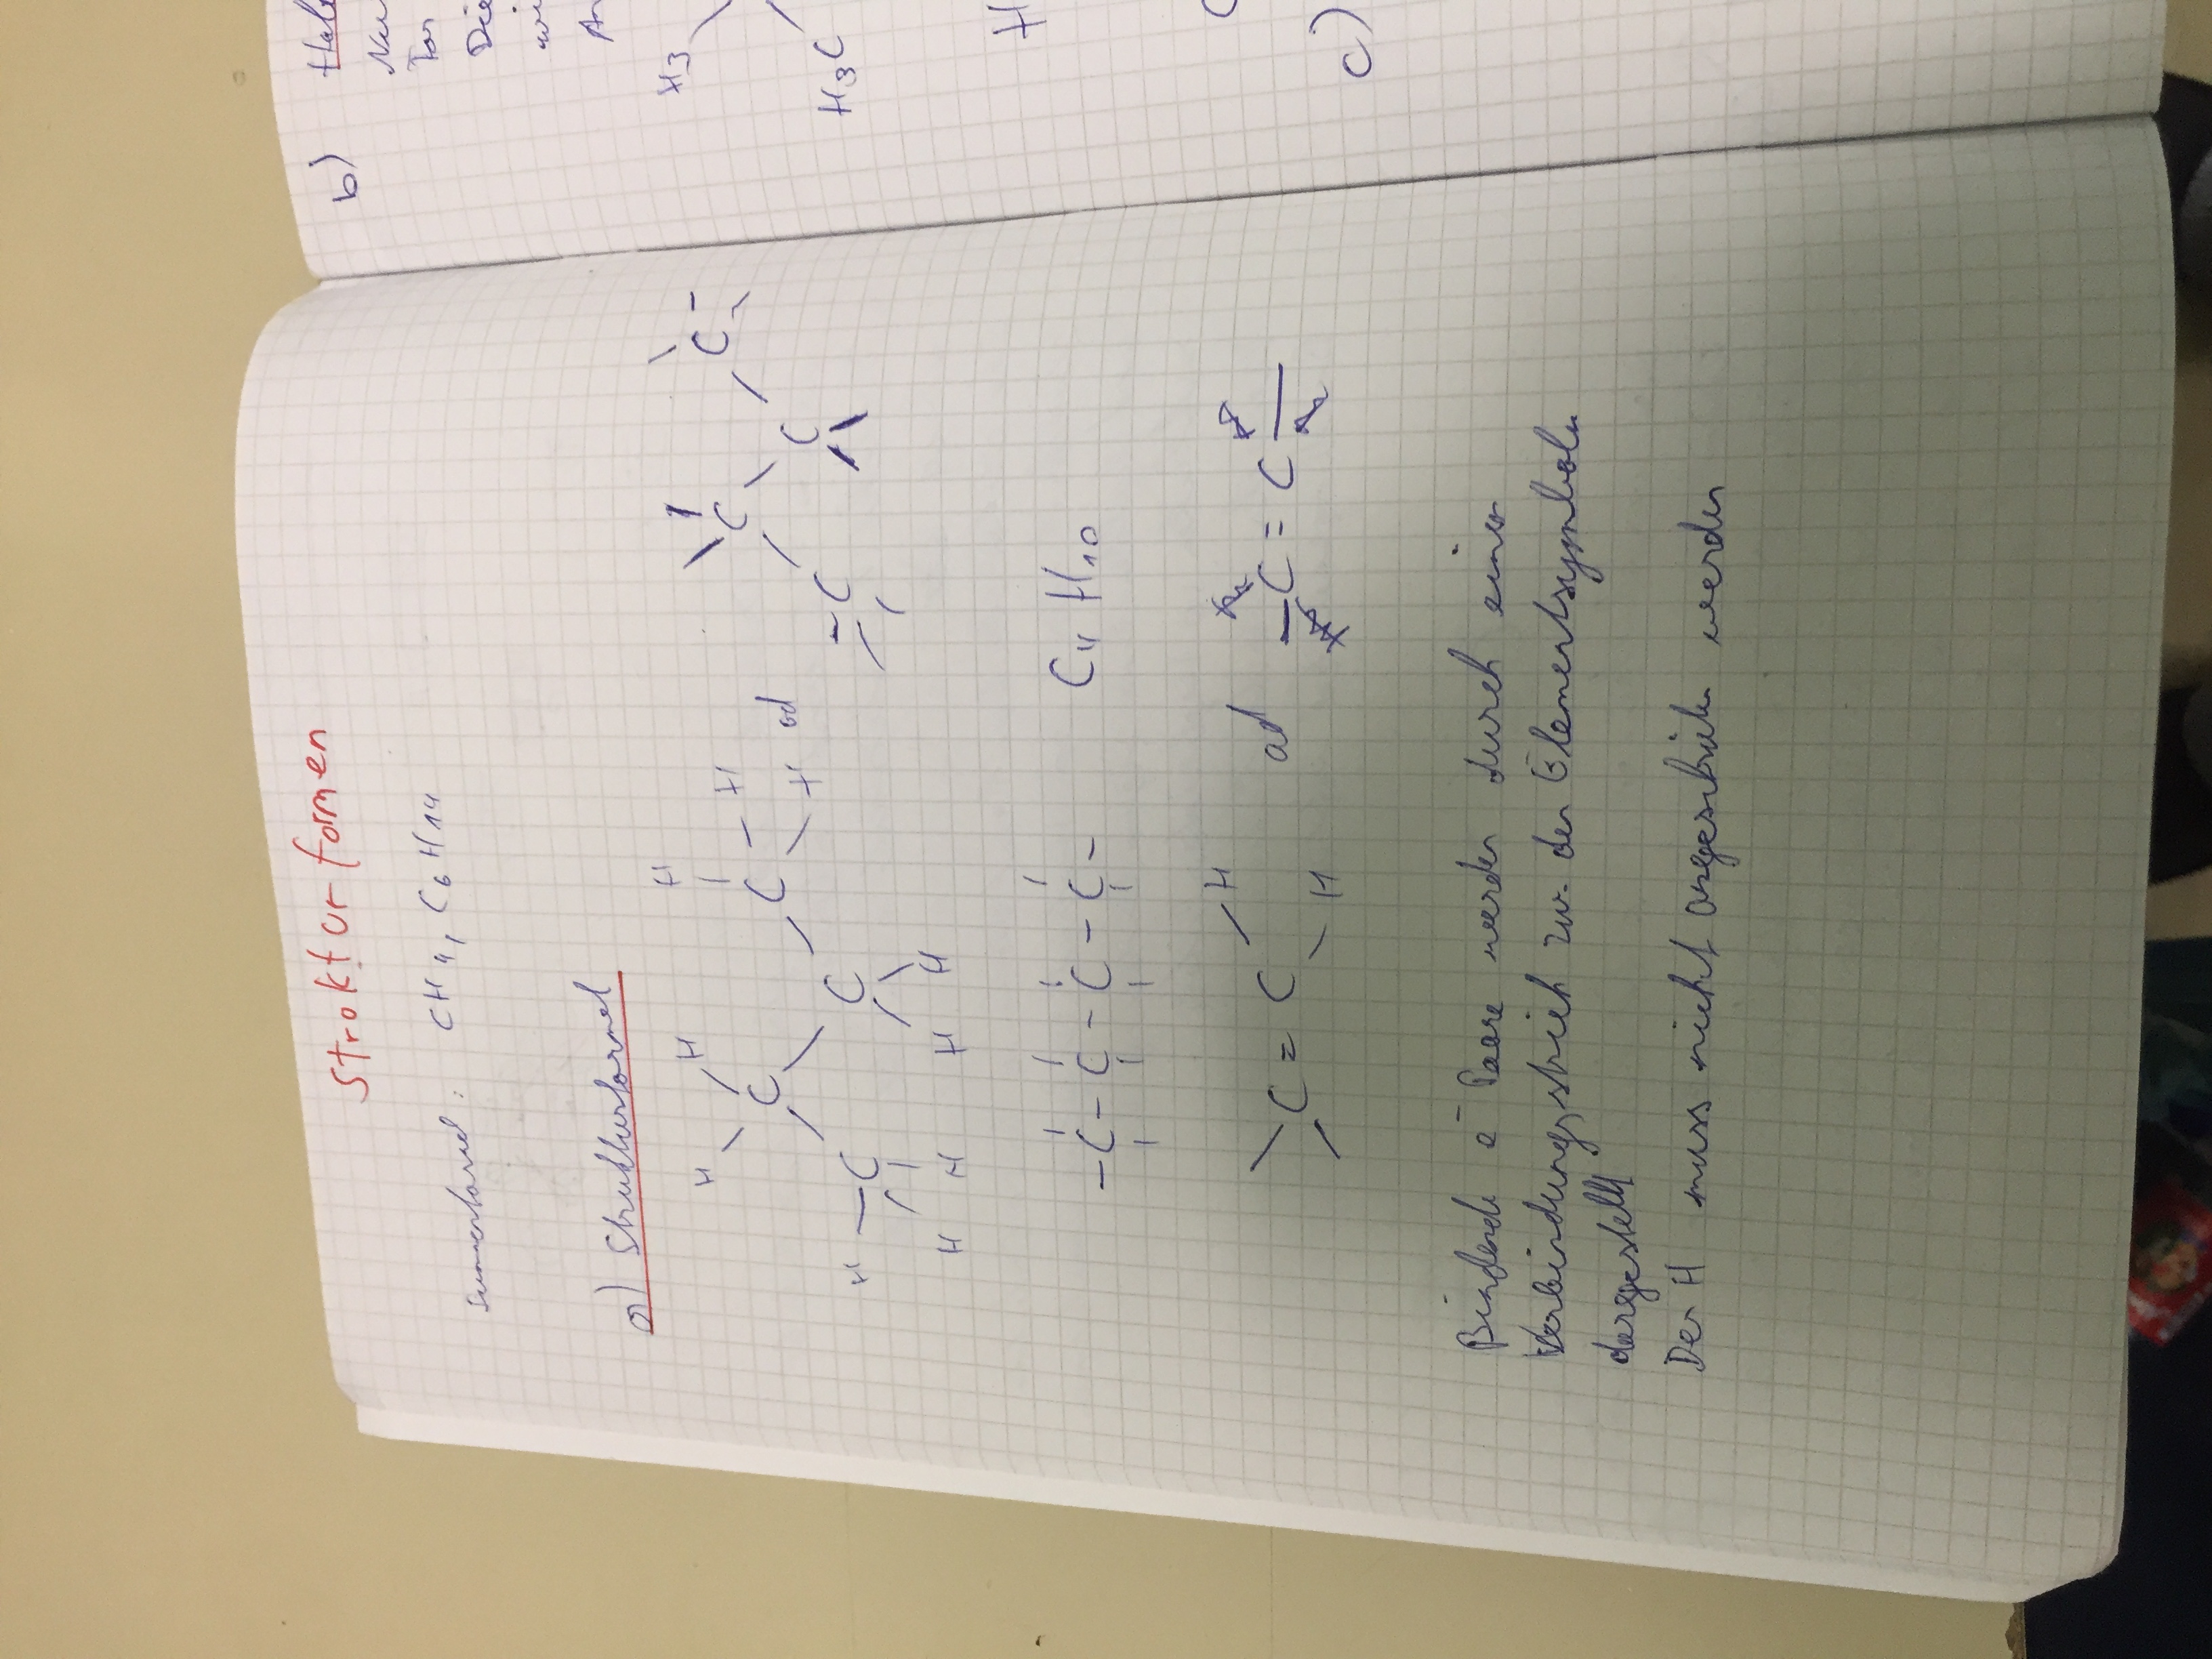 Strukturformen
Summenformel: CH4, C6H14
a) Strukturformel
H H H
C C H
H
od
H C C
H H H H
C C
C C
C C C C
C4H10
C = C
H
H
od
C = C
Bindende e⁻ Paare werden durch einen
Verbindungsstrich zw. den Elementsymbolen
dargestellt
Der H muss nicht angeschrieben werden
b)
H3
H3C
H
c)